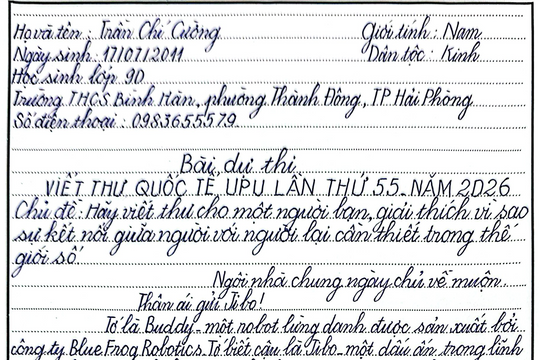 Họ và tên : Trần Chí Cường Giới tính : Nam
Ngày sinh : 17/07/2011 Dân tộc : Kinh
Học sinh lớp 9D
Trường THCS Bình Hàn, phường Thành Đông, TP Hải Phòng
Số điện thoại : 0983655579
Bài dự thi
VIẾT THƯ QUỐC TẾ UPU LẦN THỨ 55 - NĂM 2026
Chủ đề : Hãy viết thư cho một người bạn, giải thích vì sao
sự kết nối giữa người với người lại cần thiết trong thế
giới số.
Ngôi nhà chung ngày chủ về muộn.
Thân ái gửi Jibo!
Tớ là Buddy - một robot lừng danh được sản xuất bởi
công ty Blue Frog Robotics. Tớ biết cậu là Jibo - một dấu ấn trong lĩnh